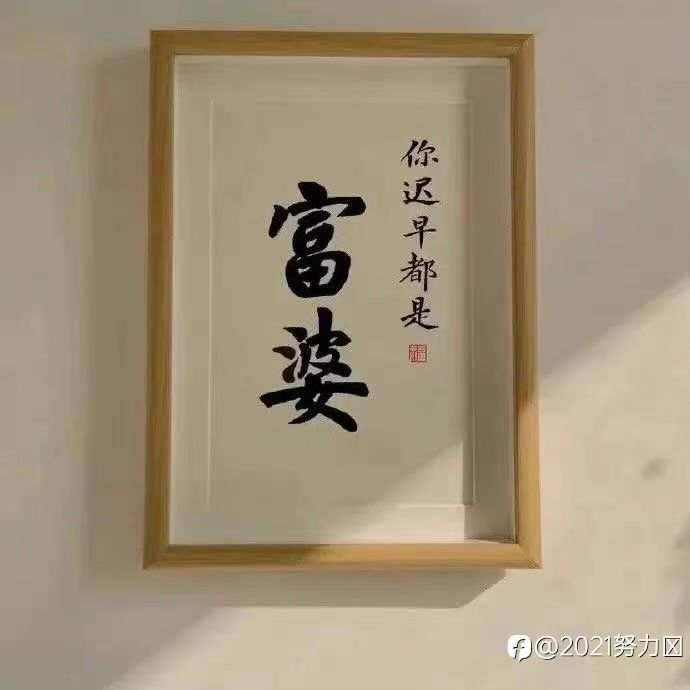 你迟早都是
富婆
@2021努力